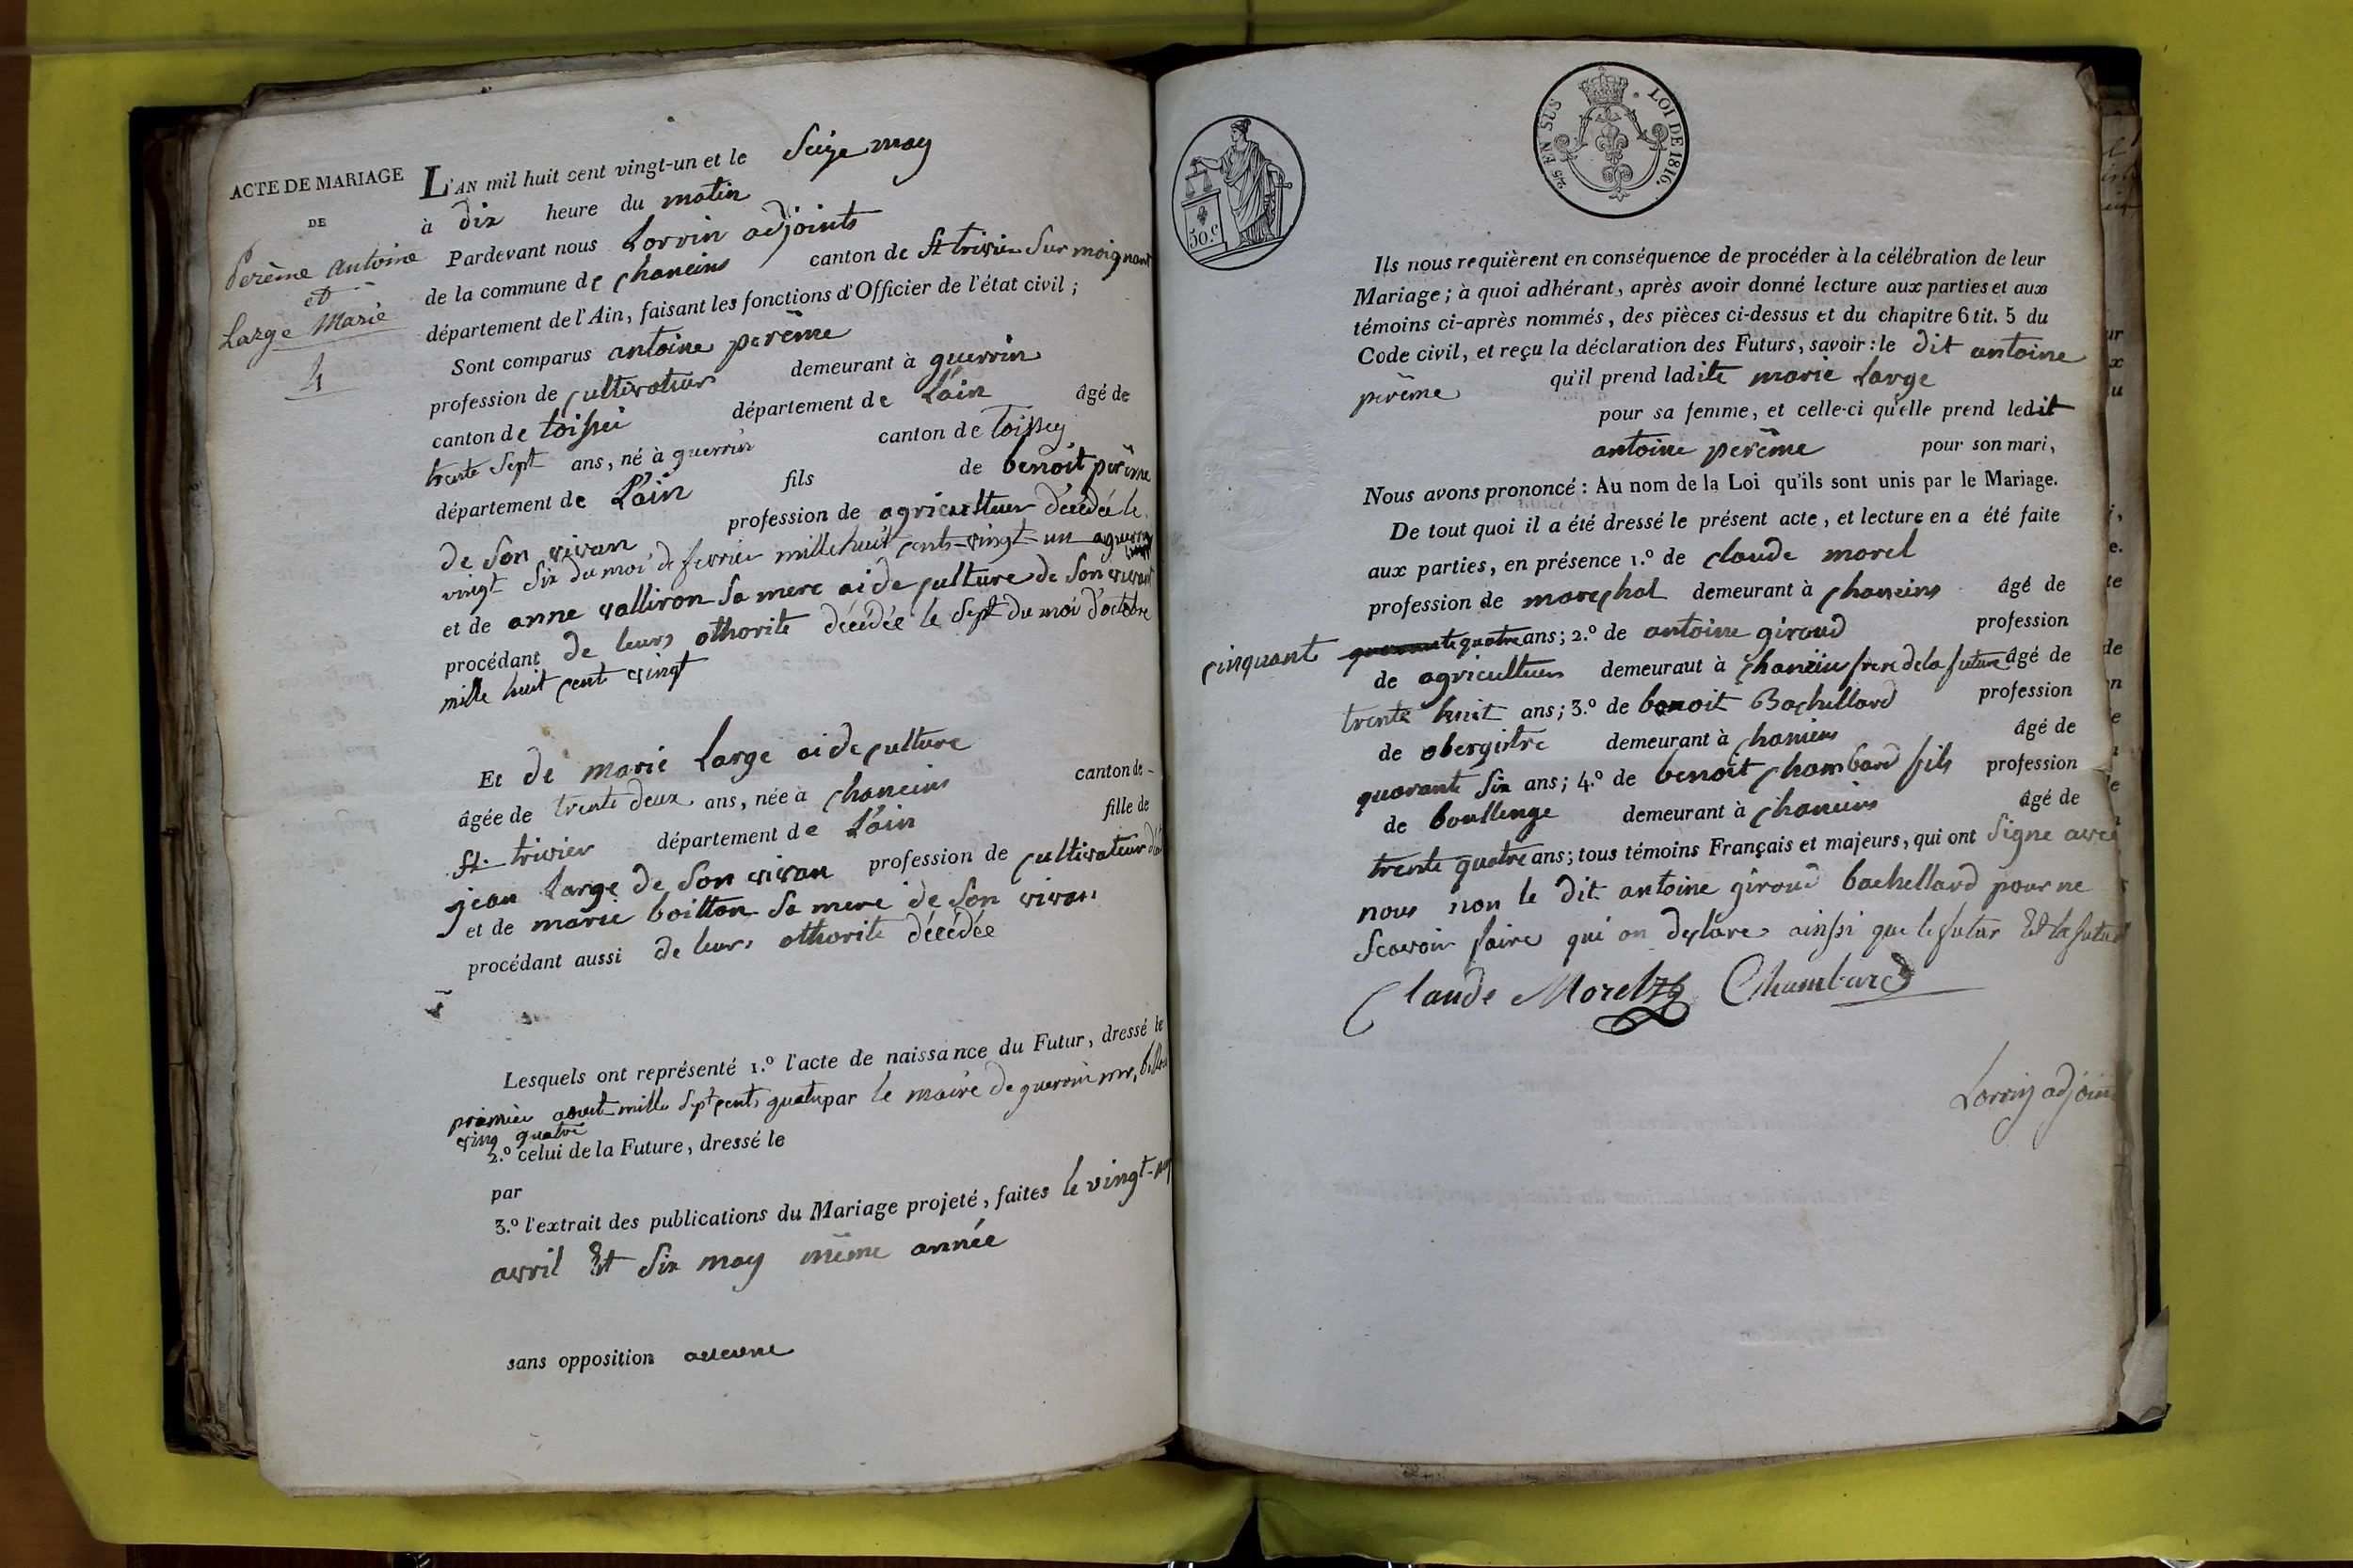 ACTE DE MARIAGE
DE
Perême Antoine
et
Large Marie
4
L'AN mil huit cent vingt-un et le Seize may
à dix heure du matin
Pardevant nous Lorrin adjoints
de la commune de chaneins canton de St trivier Sur moignant
département de l'Ain, faisant les fonctions d'Officier de l'état civil ;
Sont comparus antoine perême
profession de cultivateur demeurant à guerrin
canton de toissei département de L'ain âgé de
trente Sept ans, né à guerrin canton de Toissey
département de L'ain fils de benoît perême
de Son vivan profession de agriculteur décédé le
vingt Six du moi de fevrier mille huit cents vingt-un a guerrin
et de anne valliron Sa mere aide culture de Son vivant
procédant de leurs othorite décédée le Sept du moi d'octobre
mille huit cent vingt
Et de marie Large aide culture
âgée de trente deux ans, née à chaneins canton de
St. trivier département de L'ain fille de
jean Large de Son vivan profession de cultivateur
et de marie boitton Sa mere de Son vivan
procédant aussi de leurs othorite décédée
Lesquels ont représenté 1.º l'acte de naissance du Futur, dressé le
premier aout mille Sept cents quatre par le maire de guerrin mr.
ving quatre
2.º celui de la Future, dressé le
par
3.º l'extrait des publications du Mariage projeté, faites le vingt-
avril Et Six may même année
sans opposition aucune
50.c
25 EN SUS LOI DE 1816.
Ils nous requièrent en conséquence de procéder à la célébration de leur
Mariage ; à quoi adhérant, après avoir donné lecture aux parties et aux
témoins ci-après nommés, des pièces ci-dessus et du chapitre 6 tit. 5 du
Code civil, et reçu la déclaration des Futurs, savoir : le dit antoine
perême qu'il prend ladite marie Large
pour sa femme, et celle-ci qu'elle prend ledit
antoine perême pour son mari,
Nous avons prononcé : Au nom de la Loi qu'ils sont unis par le Mariage.
De tout quoi il a été dressé le présent acte, et lecture en a été faite
aux parties, en présence 1.º de claude morel
profession de marechal demeurant à chaneins âgé de
cinquante quarante quatre ans ; 2.º de antoine giroud profession
de agriculteur demeuraut à chaneins frere de la future âgé de
trente huit ans ; 3.º de benoit Bachellard profession
de obergistre demeurant à chaneins âgé de
quarante Six ans ; 4.º de benoit chambard fils profession
de boullenge demeurant à chaneins âgé de
trente quatre ans ; tous témoins Français et majeurs, qui ont Signe avec
nous non le dit antoine giroud bachellard pour ne
Scavoir faire qui on declare ainssi que le futur Et la futur
Claude Morel Chambard
Lorrin adjoint